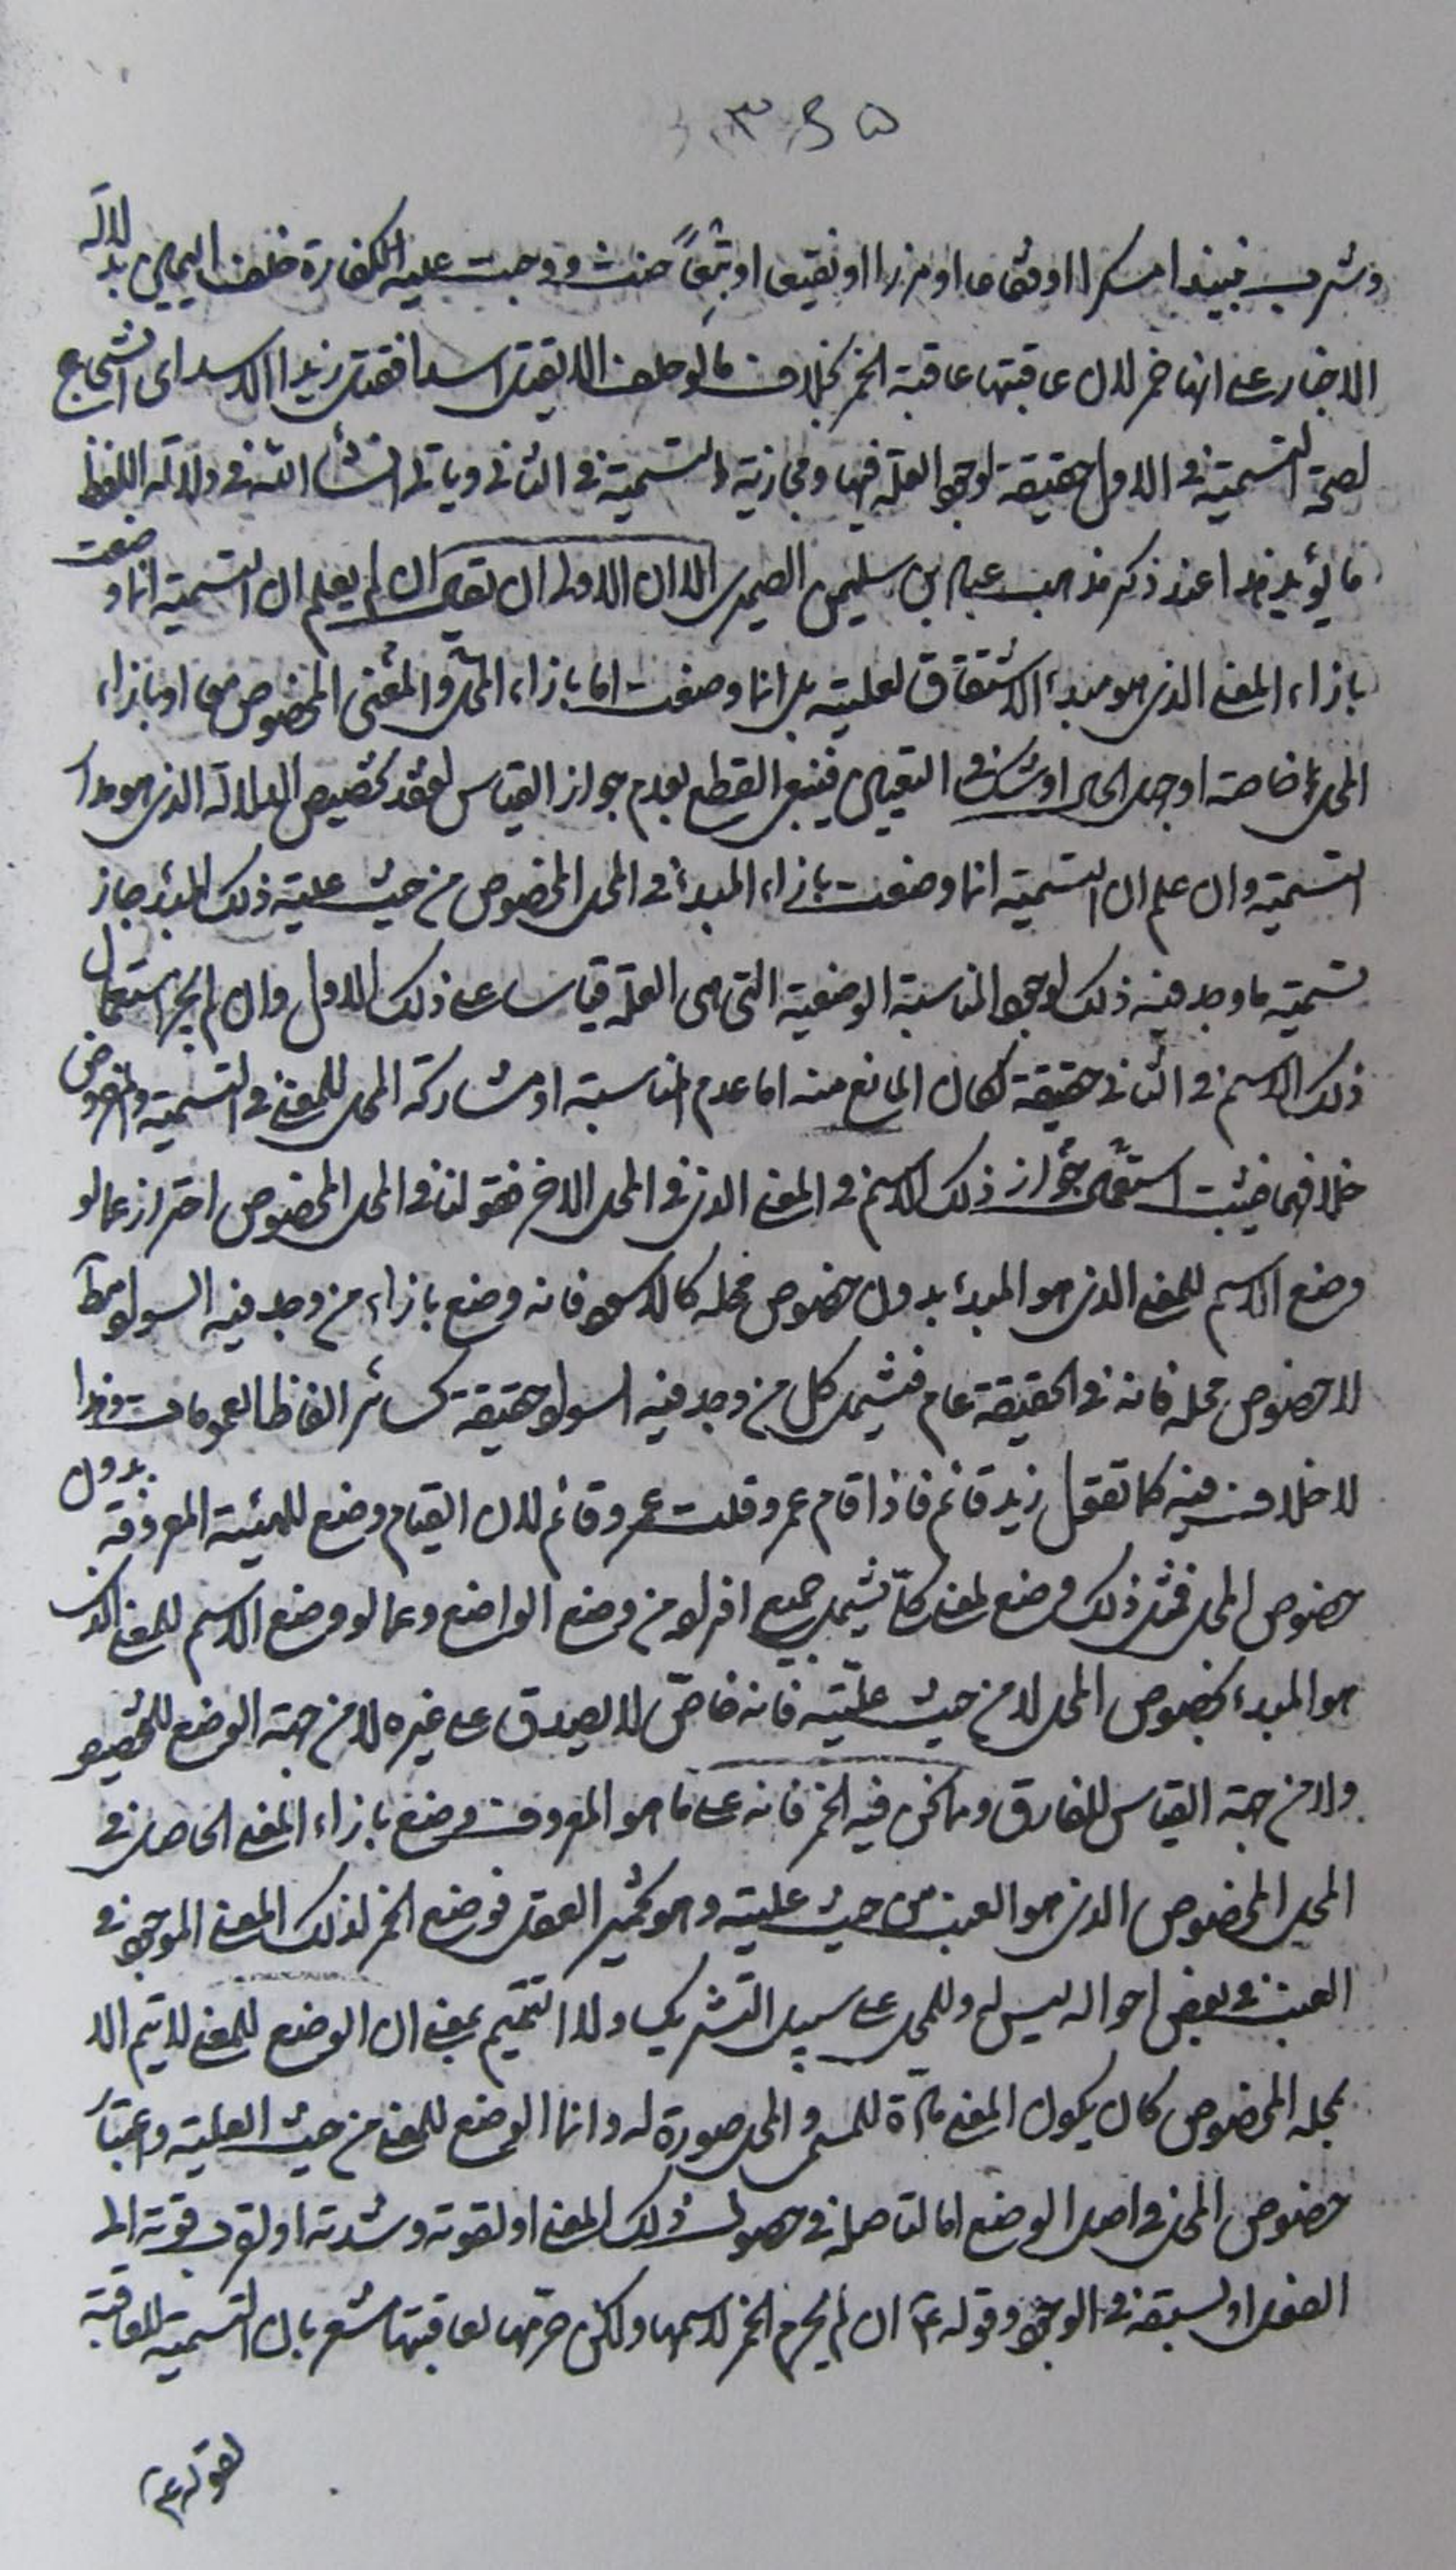 وشرب نبيذا مسكرا او فقاعا او مزرا او نقيعا او بتعاً حنث ووجبت عليه الكفارة خلف اليمين بدلالة
الاخبار على انها خمر لان عاقبتها عاقبة الخمر بخلاف ما لو حلف لا يقتل اسدا فقتل زيدا الاسد اى الشجاع
لصحة التسمية في الاول حقيقة لوجود العلة فيها ومجازية التسمية في الثاني وياتي انشاء الله في دلالة اللفظ
ما يؤيد هذا عند ذكر مذهب عباد بن سليمن الصيمرى الا ان الاولى ان يقال ان لم يعلم ان التسمية انما وضعت
بازاء المعنى الذى هو مبدء الاشتقاق لعليته بل انما وضعت اما بازاء المحل والمعنى المخصوص معا او بازاء
المحل خاصة او جهل الحال او شك في التعيين فينبغي القطع بعدم جواز القياس لفقد تخصيص الدلالة الذى هو مدار
التسمية وان علم ان التسمية انما وضعت بازاء المبدء في المحل المخصوص من حيث علية ذلك المبدء جاز
تسمية ما وجد فيه ذلك لوجود المناسبة الوضعية التي هى العلة قياسا على ذلك الاول وان لم يجز استعمال
ذلك الاسم في الثاني حقيقة لكان المانع منه اما عدم المناسبة او مشاركة المحل للمعنى في التسمية والمفروض
خلافهما فيثبت استعمال جواز ذلك الاسم في المعنى الذى في المحل الاخر فقولنا في المحل المخصوص احتراز عما لو
وضع الاسم للمعنى الذى هو المبدء بدون خصوص محله كالاسود فانه وضع بازاء من وجد فيه السواد مطلقا
لا خصوص محله فانه في الحقيقة عام فيشمل كل من وجد فيه السواد حقيقة كسائر الفاظ العمومات وهذا
لا خلاف فيه كما تقول زيد قائم فاذا قام عمرو قلت عمرو قائم لان القيام وضع للهيئة المعروفة بدون
خصوص المحل فمثل ذلك وضع لمعنى كلّى يشمل جميع افراده من وضع الواضع وعما لو وضع الاسم للمعنى الذى
هو المبدء بخصوص المحل لا من حيث علّيته فانه خاصّ لا يصدق على غيره لا من جهة الوضع للتخصيص
ولا من جهة القياس للفارق وما نحن فيه الخمر فانه على ما هو المعروف وضع بازاء المعنى الحاصل في
المحل المخصوص الذى هو العنب من حيث عليته وهو تخمير العقل فوضع الخمر لذلك المعنى الموجود في
العنب في بعض احواله ليس له وللمحل على سبيل التشريك ولا التتميم بمعنى ان الوضع للمعنى لا يتم الا
بمحله المخصوص كان يكون المعنى مادّة للمسمى والمحل صورة له وانما الوضع للمعنى من حيث العلية واعتبار
خصوص المحل في اصل الوضع اما لتاصله في حصول ذلك المعنى او لقوته وشدته او لقرب قوته الى
الفعل او لسبقه في الوجود وقوله ع ان لم يحرم الخمر لاسمها ولكن حرّمها لعاقبتها مشعر بان التسمية للعاقبة
لقوله ع